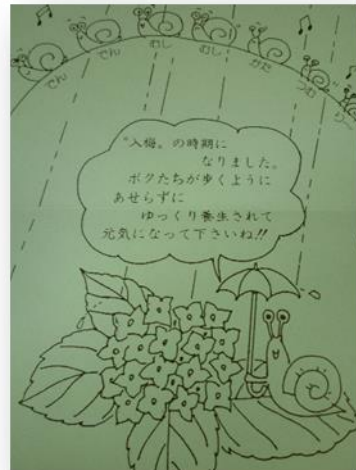 でん でん むし むし かた つむ り
"入梅„の時期に
なりました。
ボクたちが歩くように
あせらずに
ゆっくり養生されて
元気になって下さいね!!